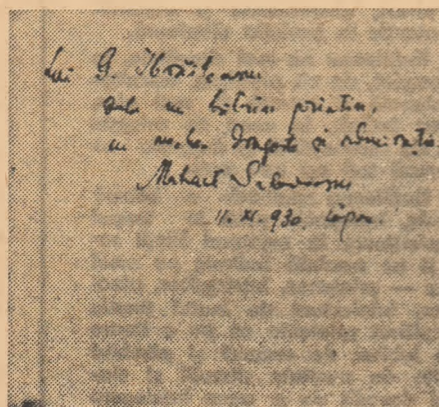 Lui G. Ibrăileanu
dela un bătrân prietin,
cu multă dragoste și admirație.
Mihail Sadoveanu
11. XI. 930. Copou.